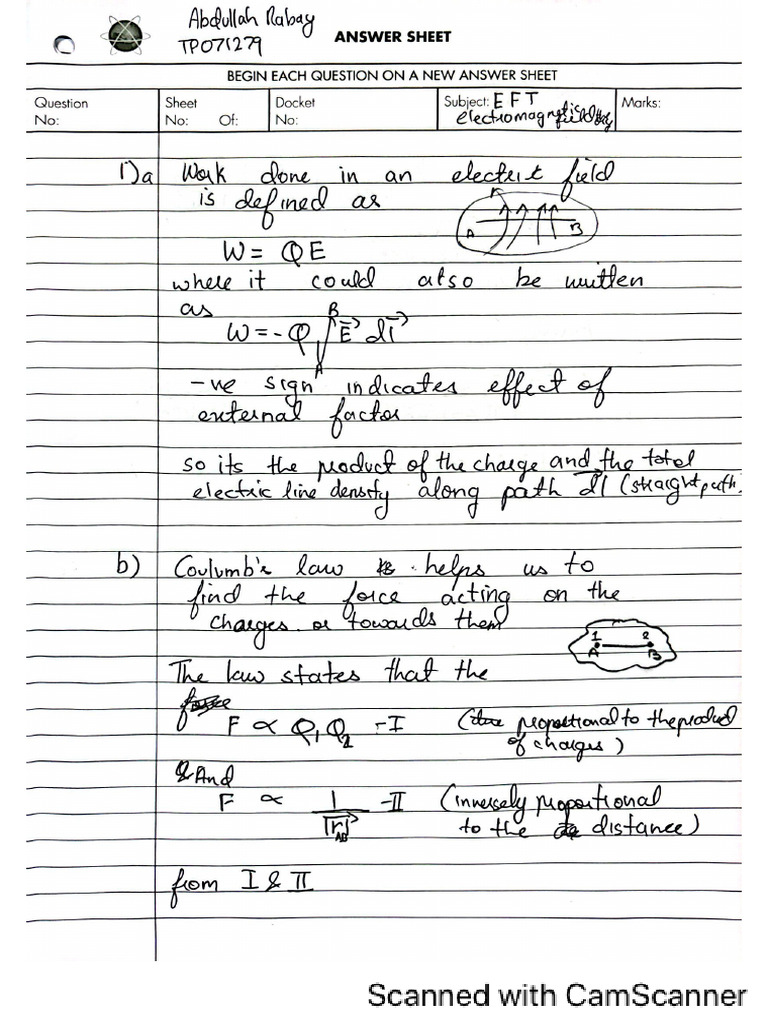 Abdullah Rabay
TP071279
ANSWER SHEET
BEGIN EACH QUESTION ON A NEW ANSWER SHEET
Question No:
Sheet No: Of:
Docket No:
Subject: EFT electromagnetic field
Marks:
1) a Work done in an electric field
is defined as
A B
W = QE
where it could also be written
as
W = -Q ∫ᴬᴮ E⃗ dl⃗
-ve sign indicates effect of
external factor
so its the product of the charge and the total
electric line density along path dl (straight path)
b) Coulumb's law helps us to
find the force acting on the
charges or towards them
1 2
A B
The law states that the
F ∝ Q₁Q₂ -I (proportional to the product
of charges)
& And
F ∝ 1/|r⃗|AB -II (inversely proportional
to the distance)
from I & II
Scanned with CamScanner